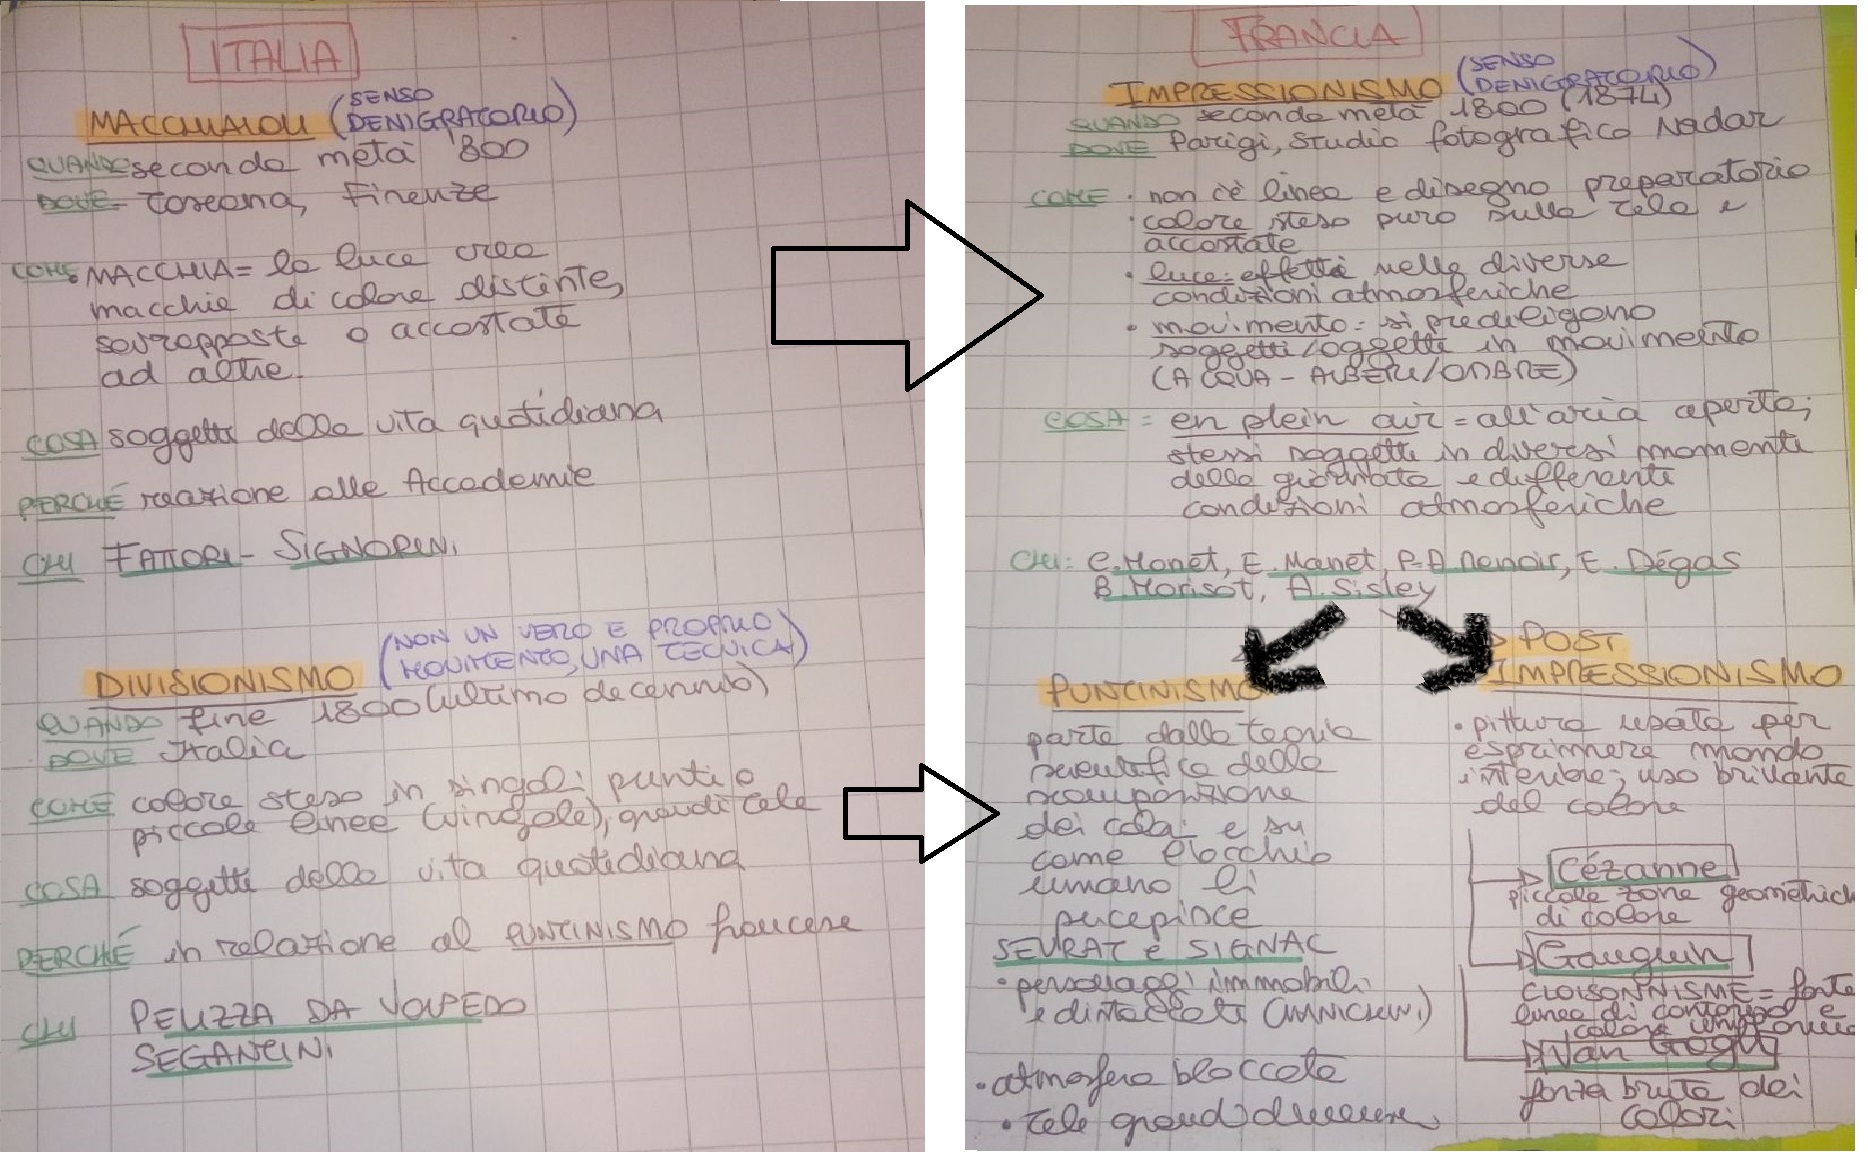 ITALIA
MACCHIAIOLI (SENSO
DENIGRATORIO)
QUANDO seconda metà '800
DOVE Toscana, Firenze
COME MACCHIA = la luce crea
macchie di colore distinte,
sovrapposte o accostate
ad altre.
COSA soggetti della vita quotidiana
PERCHÉ reazione alle Accademie
CHI FATTORI - SIGNORINI
DIVISIONISMO (NON UN VERO E PROPRIO
MOVIMENTO, UNA TECNICA)
QUANDO fine 1800 (ultimo decennio)
DOVE Italia
COME colore steso in singoli punti o
piccole linee (virgole), grandi tele
COSA soggetti della vita quotidiana
PERCHÉ in relazione al PUNTINISMO francese
CHI PELIZZA DA VOLPEDO
SEGANTINI
FRANCIA
IMPRESSIONISMO (SENSO
DENIGRATORIO)
QUANDO seconda metà 1800 (1874)
DOVE Parigi, Studio fotografico Nadar
COME • non c'è linea e disegno preparatorio
• colore steso puro sulla tela e
accostate
• luce: effetti nelle diverse
condizioni atmosferiche
• movimento = si prediligono
soggetti/oggetti in movimento
(ACQUA - ALBERI/OMBRE)
COSA = en plein air = all'aria aperta;
stessi soggetti in diversi momenti
della giornata e differenti
condizioni atmosferiche
CHI: C. Monet, E. Manet, P-A Renoir, E. Dégas
B. Morisot, A. Sisley
PUNTINISMO
parte dalla teoria
scientifica della
scomposizione
dei colori e su
come l'occhio
umano li
percepisce
SEURAT E SIGNAC
• personaggi immobili
e distaccati (MANICHINI)
• atmosfera bloccata
• tele grandi dimensioni
POST
IMPRESSIONISMO
• pittura usata per
esprimere mondo
interiore; uso brillante
del colore
Cézanne
piccole zone geometrich
di colore
Gauguin
CLOISONNISME = forte
linea di contorno e
colore uniforme
Van Gogh
forza bruta dei
colori